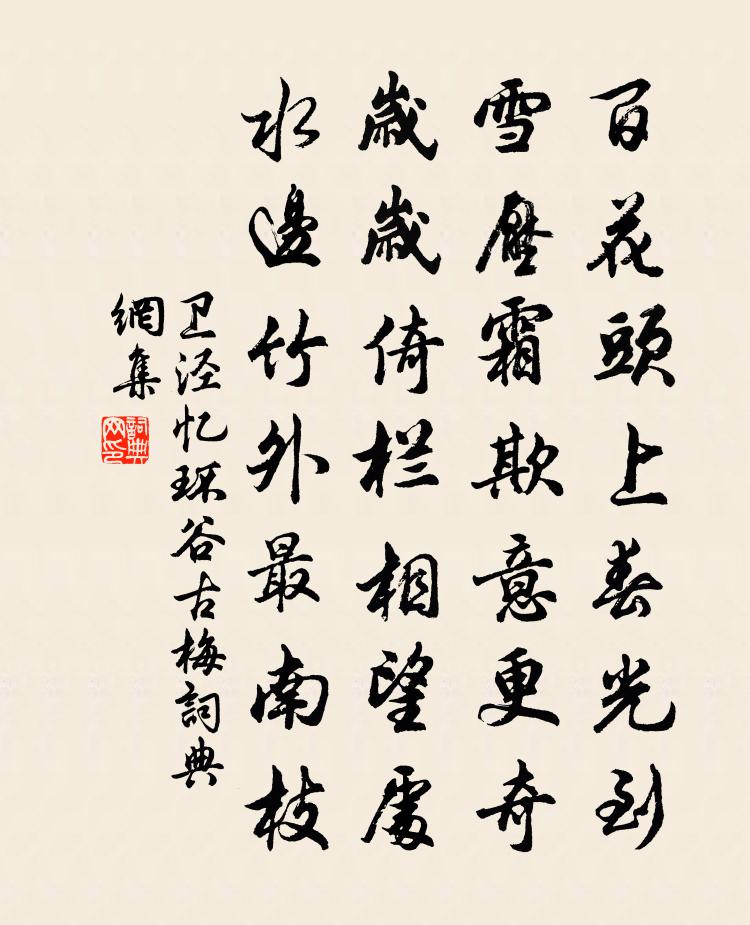 百花頭上春光到
雪壓霜欺意更奇
歲歲倚栏相望處
水邊竹外最南枝
卫泾忆环谷古梅詞典
網集
詞典
网印